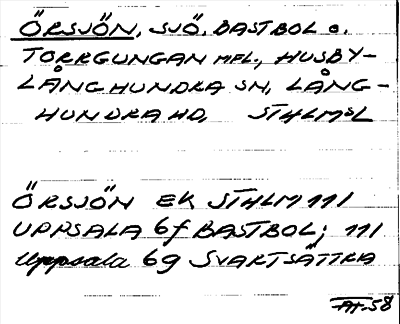 ÖRSJÖN, SJÖ, BASTBOL O.
TORRGUNGAN MFL., HUSBY-
LÅNGHUNDRA SN, LÅNG-
HUNDRA HD, STHLMSL
ÖRSJÖN EK STHLM 111
UPPSALA 6f BASTBOL; 111
Uppsala 6g SVARTSÄTTRA
-58